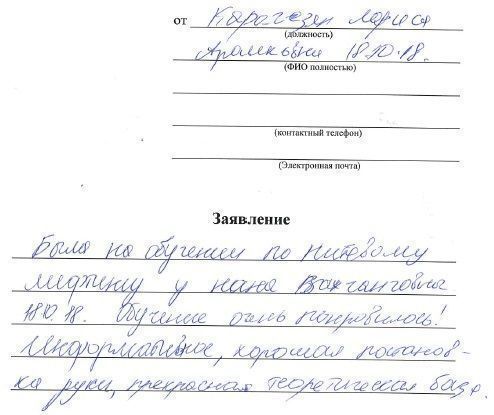 от Карагезян Лариса
(должность)
Арамковна 18.10.18.
(ФИО полностью)
(контактный телефон)
(Электронная почта)
Заявление
Была на обучении по нитевому
лифтингу у нана Вахтанговны
18.10.18. Обучение очень понравилось!
Информативное, хорошая постанов-
ка руки, прекрасная теоретическая база.